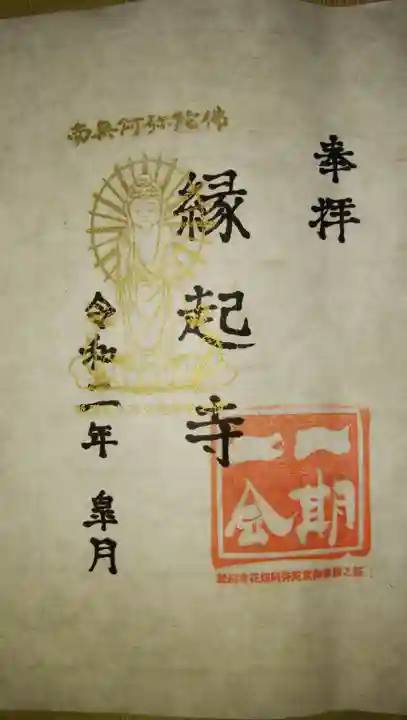 奉拝
南無阿弥陀佛
縁起寺
令和二年 皐月
一期
一会